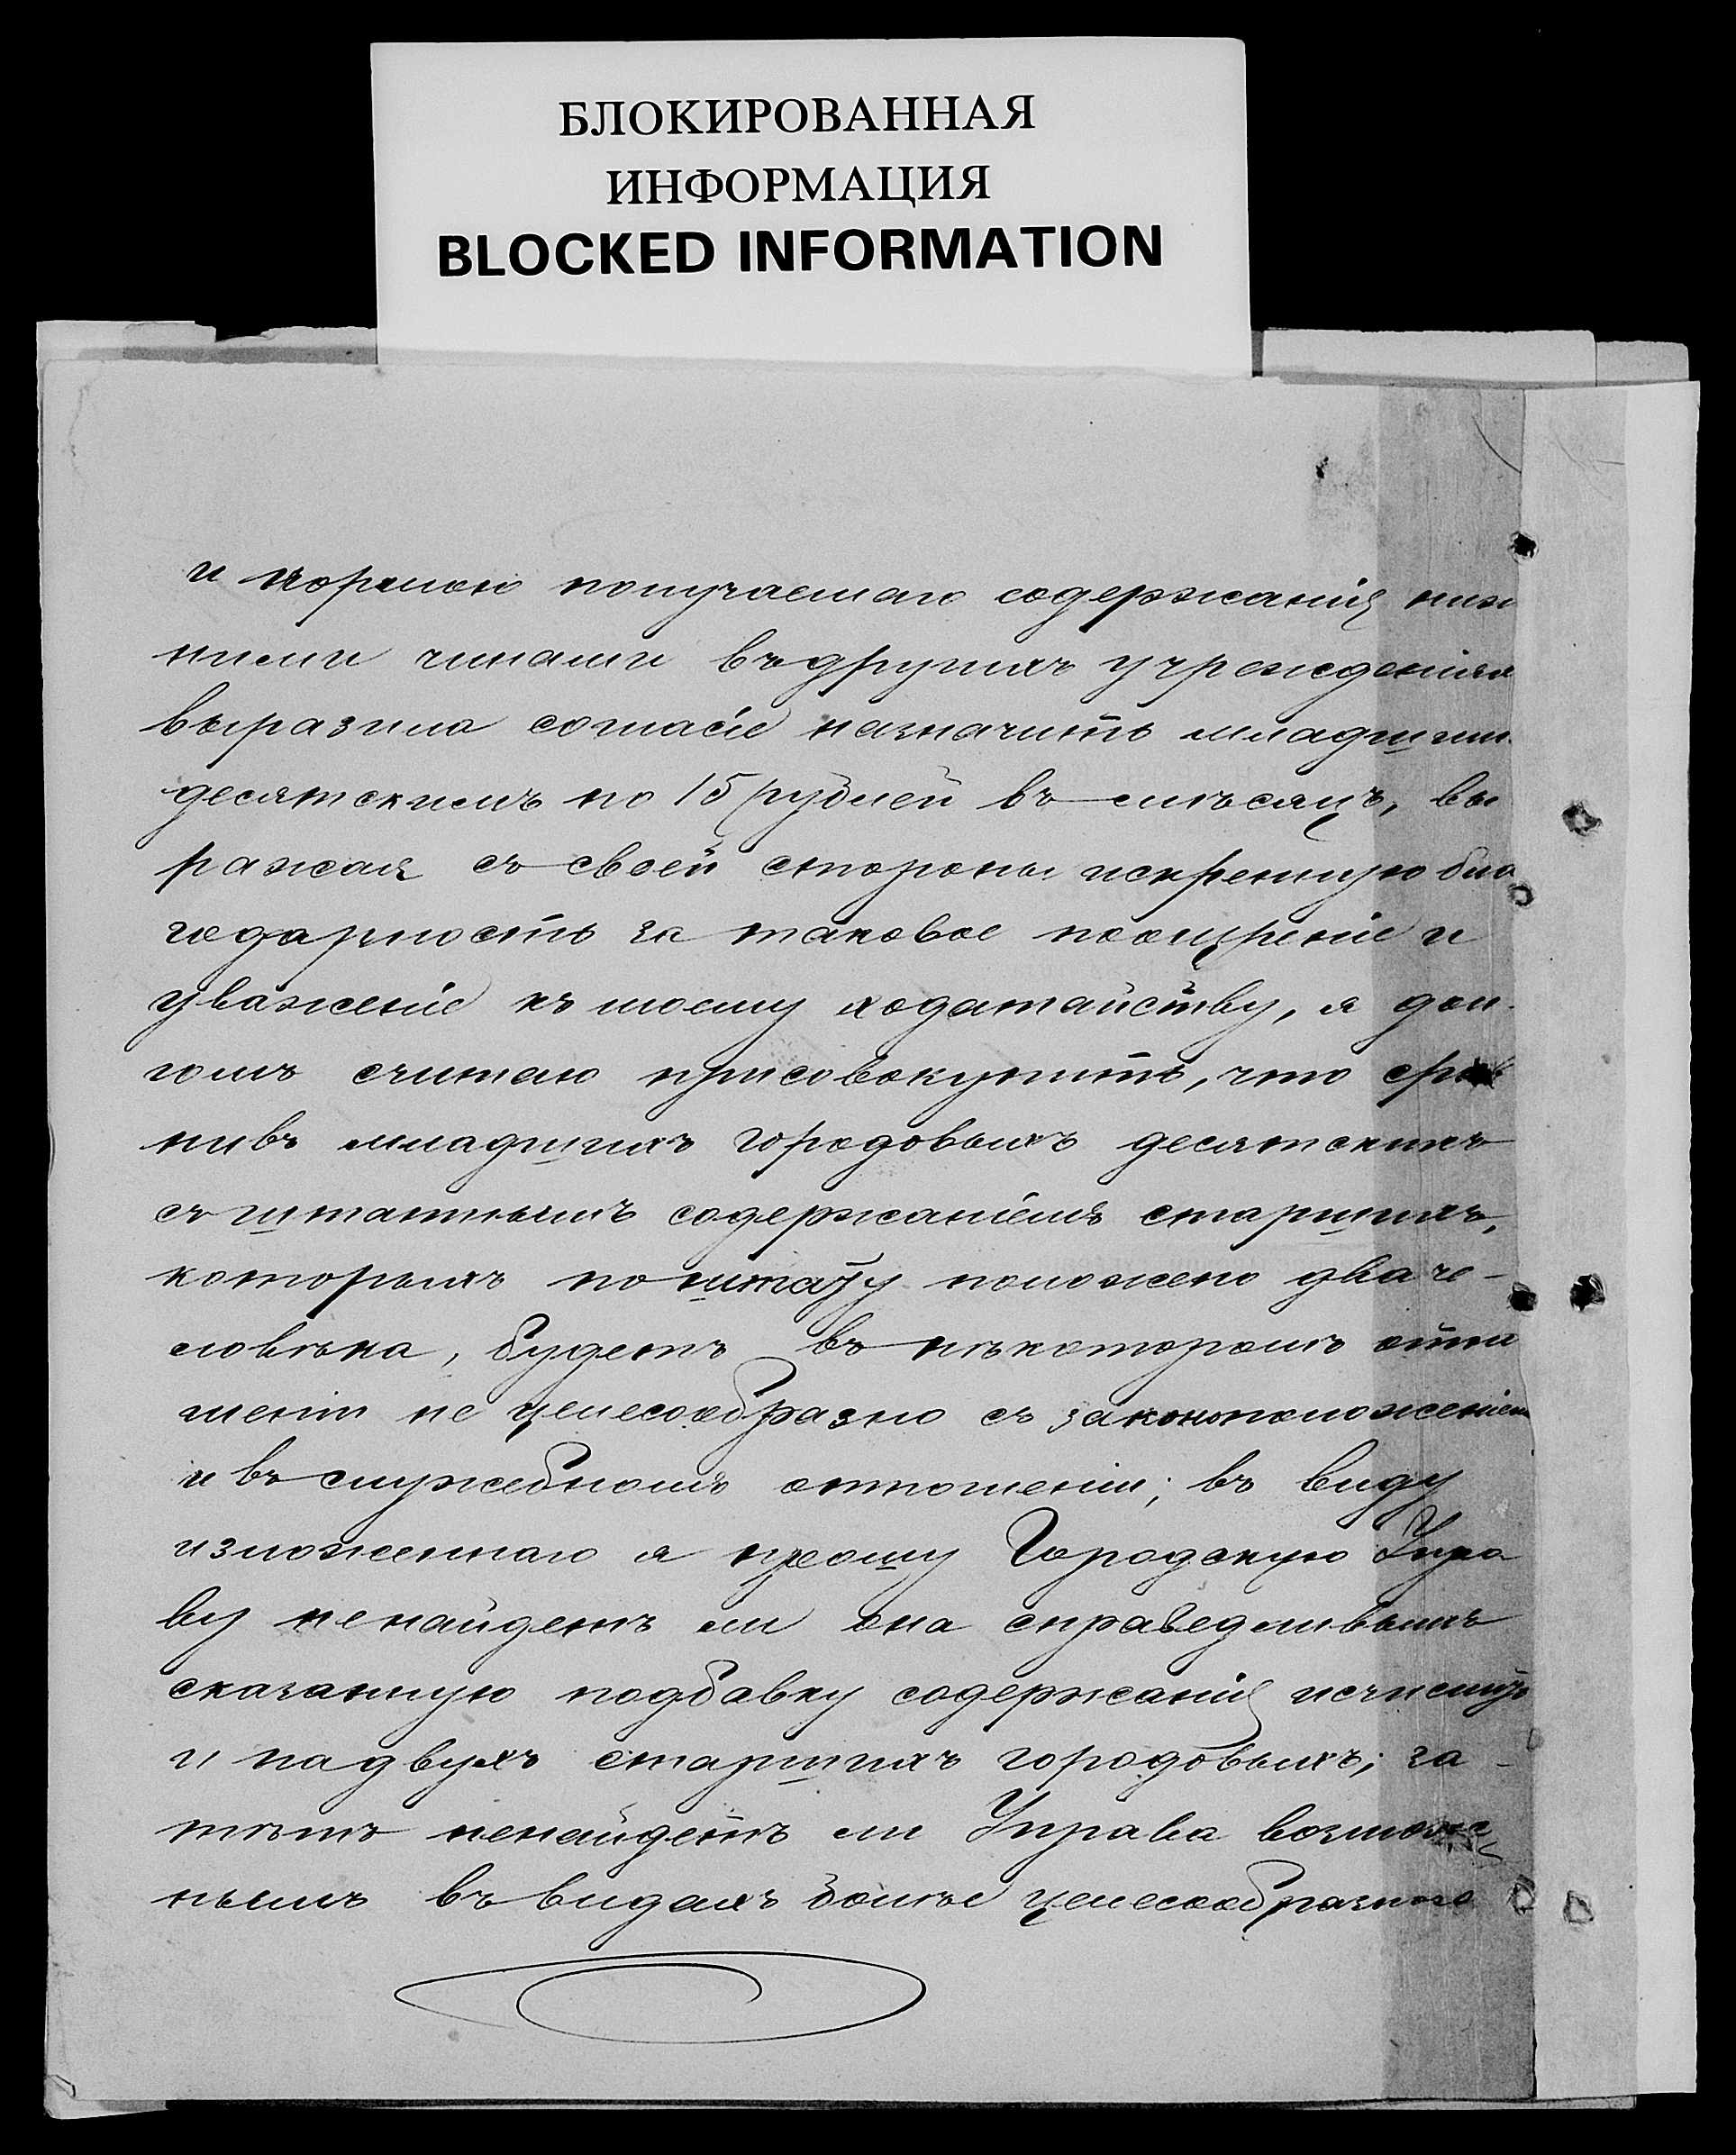 БЛОКИРОВАННАЯ
ИНФОРМАЦИЯ
BLOCKED INFORMATION
и нормою получаемаго содержанія ниж
ними чинами въ другихъ учрежденіях
выразила согласіе назначить младшим
десятскимъ по 15 рублей въ мѣсяцъ, вы
ражая съ своей стороны искреннюю бла
годарность за таковое поощреніе и
уваженіе къ моему ходатайству, я дол-
гомъ считаю присовокупить, что срав
нивъ младшихъ городовыхъ десятскихъ
съ штатнымъ содержаніемъ старшихъ,
которыхъ по штату положено два че-
ловѣка, будетъ въ нѣкоторомъ отно
шеніи не целесообразно съ законоположеніем
и въ служебномъ отношеніи; въ виду
изложеннаго я прошу Городскую Упра
ву ненайдетъ ли она справедливымъ
сказанную подбавку содержанія исчислить
и на двухъ старшихъ городовыхъ; за-
тѣмъ ненайдетъ ли Управа возмож
нымъ въ видахъ болѣе целесообразнаго